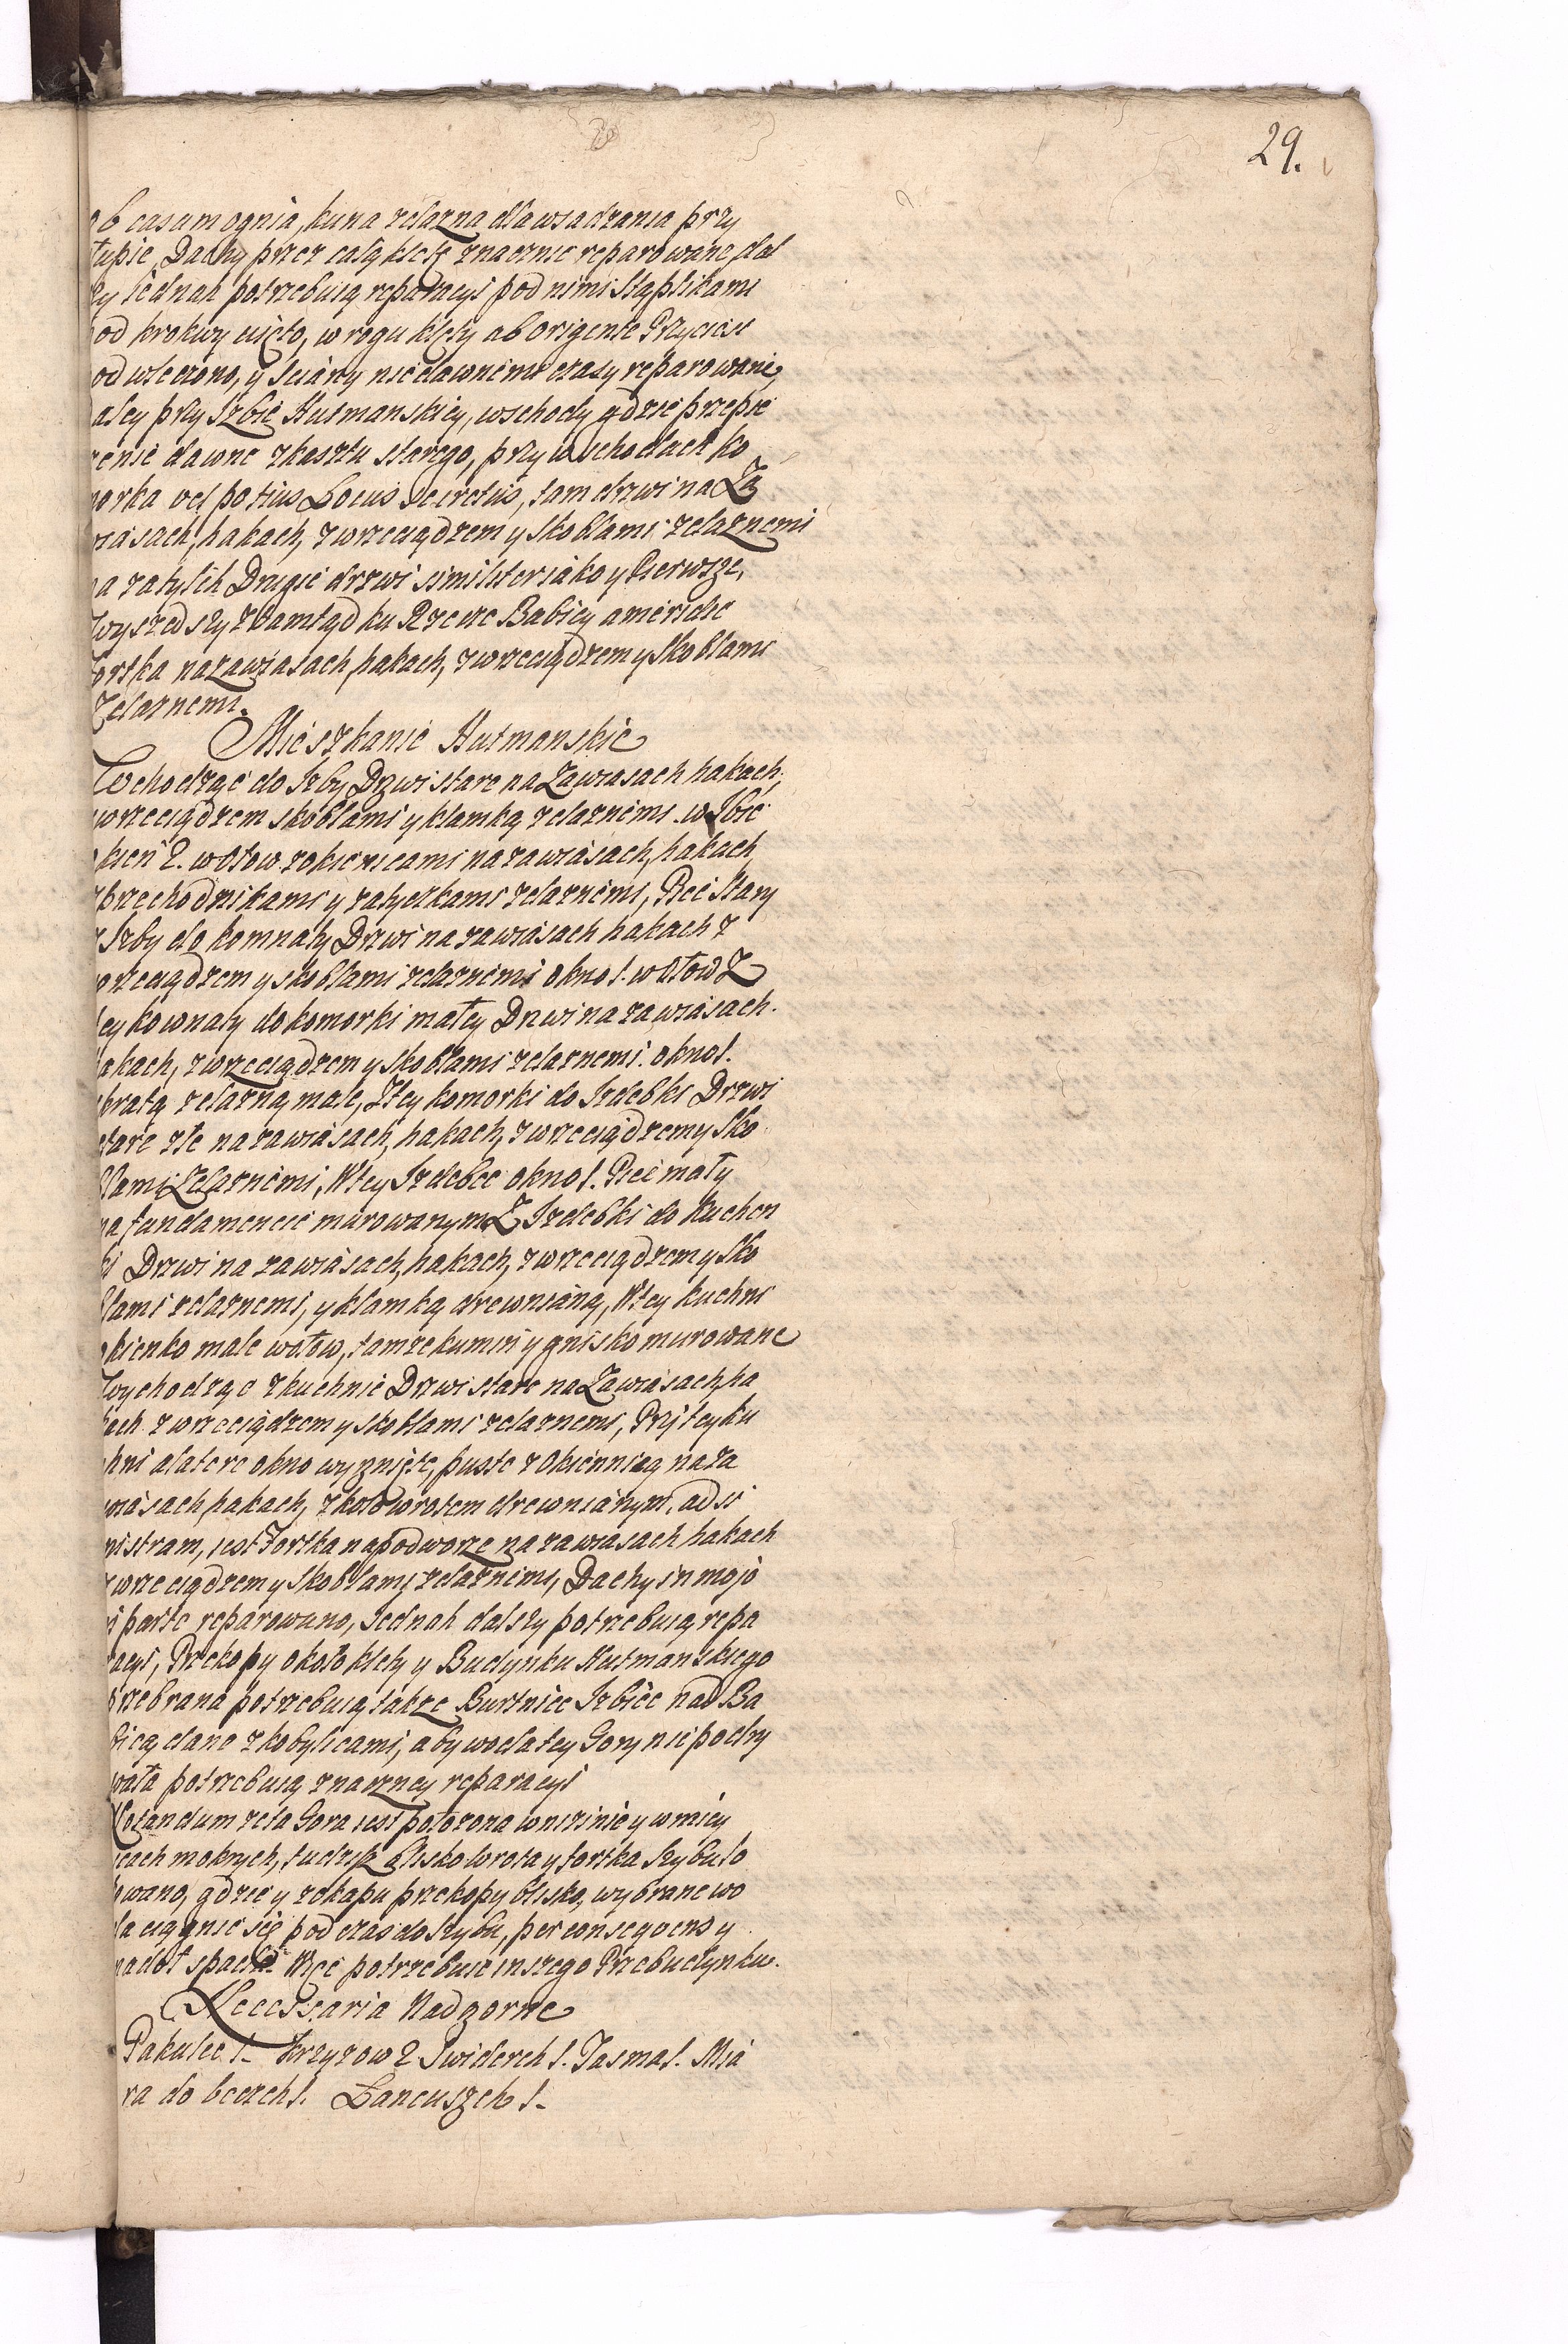 29.
ob casum ognia, kuna zelazna dla wsadzania przy
słupie, Dachy przez całą kletę znacznie reparowane, dal
szy iednak potrzebuią reparacyi pod nimi Stąplikami
pod krokwy uięto, w rogu klety ab origente Przyciesi
podwleczono, y sciány niedawnemi czasy reparowane,
daley przy Izbie Hutmanskiey, wschody gdzie przepie
rzenie dawne z kosztu starego, przy wschodach ko
morka vel potius Locus Secretus, tam drzwi na Za
wiasach, hakach, z wrzeciądzem y Skoblami zelaznemi
na zatylch Drugie drzwi similiter iako y Pierwsze,
Wyszedszy ztamtąd ku Rzecze Babiey a meridie
fortka na zawiasach, hakach, z wrzeciądzem y Skoblami
Zelaznemi.
Mieszkanie Hutmanskie
Wchodząc do Izby Drzwi stare na Zawiasach hakach
z wrzeciądzem skoblami y klamką zelaznemi. w Izbie
okien 2. w ołow z okienicami na zawiásach, hakach,
z przechodnikami y zatyczkami zelaznemi, Piec stary
z Izby do komnaty Drzwi na zawiásach hakach z
wrzeciądzem y skoblami zelaznemi okno 1. w ołow Z
tey kownaty do komorki małey Drzwi na zawiásach
hakach, z wrzeciądzem y Skoblami zelaznemi. okno 1.
z kratą zelazną małe, Z tey komorki do Izdebki Drzwi
stare złe na zawiásach, hakach, z wrzeciądzem y Sko
blami Zelaznemi, W tey Izdebce okno 1. Piec mały
na fundamencie murowanym Z Izdebki do Kuchen
ki Drzwi na zawiásach, hakach, z wrzeciądzem y Sko
blami zelaznemi, y klamką drewnianą, W tey kuchni
okienko małe w ołow, tamze kumin y gnisko murowane
Wychodząc z kuchnie Drzwi stare na Zawiásach, ha
kach z wrzeciądzem y skoblami zelaznemi, Przy tey ku
chni a latere okno wyznięte, puste z Okiennicą na za
wiásach hakach, z kołowrotem drewniánym, ad si
nistram, iest Fortka na podworze na zawiasach hakach
z wrzeciądzem y Skoblamy zelaznemi, Dachy in majo
ri parte reparowano, Jednak dalszy potrzebuią repa
racyi, Przekopy około klety y Budynku Hutmanskiego
przebrania potrzebuią takze Burtnice Izbice nad Ba
bicą dane z kobylicami, aby woda tey Gory nie podry
wała potrzebuią znaczney reparacyi
Notandum ze ta Gora iest połozona w nizinie y w miey
scach mokrych, tudziesz blisko wrota y fortka Szybulo
wano, gdzie y z okapu przekopy blisko, wybrane wo
da ciągnie się pod czas do Szybu, per conseqvens y
nadoł spada Więc potrzebuie inszego Przebudynku.
Necessaria Nadgorne
Pakulec 1. Krzyzow 2 Swiderek 1. Tasma 1. Mia
ra do beczek 1. Lancuszek 1.